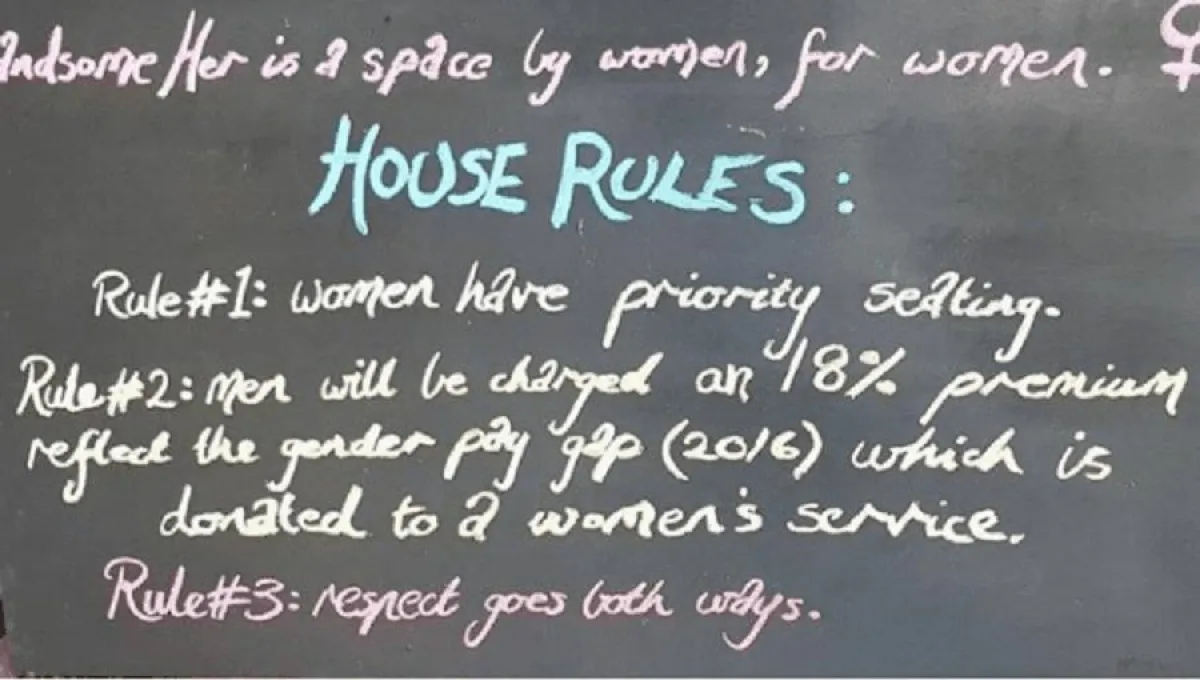 andsome Her is a space by women, for women. ♀
HOUSE RULES:
Rule #1: women have priority seating.
Rule #2: men will be charged an 18% premium
reflect the gender pay gap (2016) which is
donated to a women's service.
Rule #3: respect goes both ways.